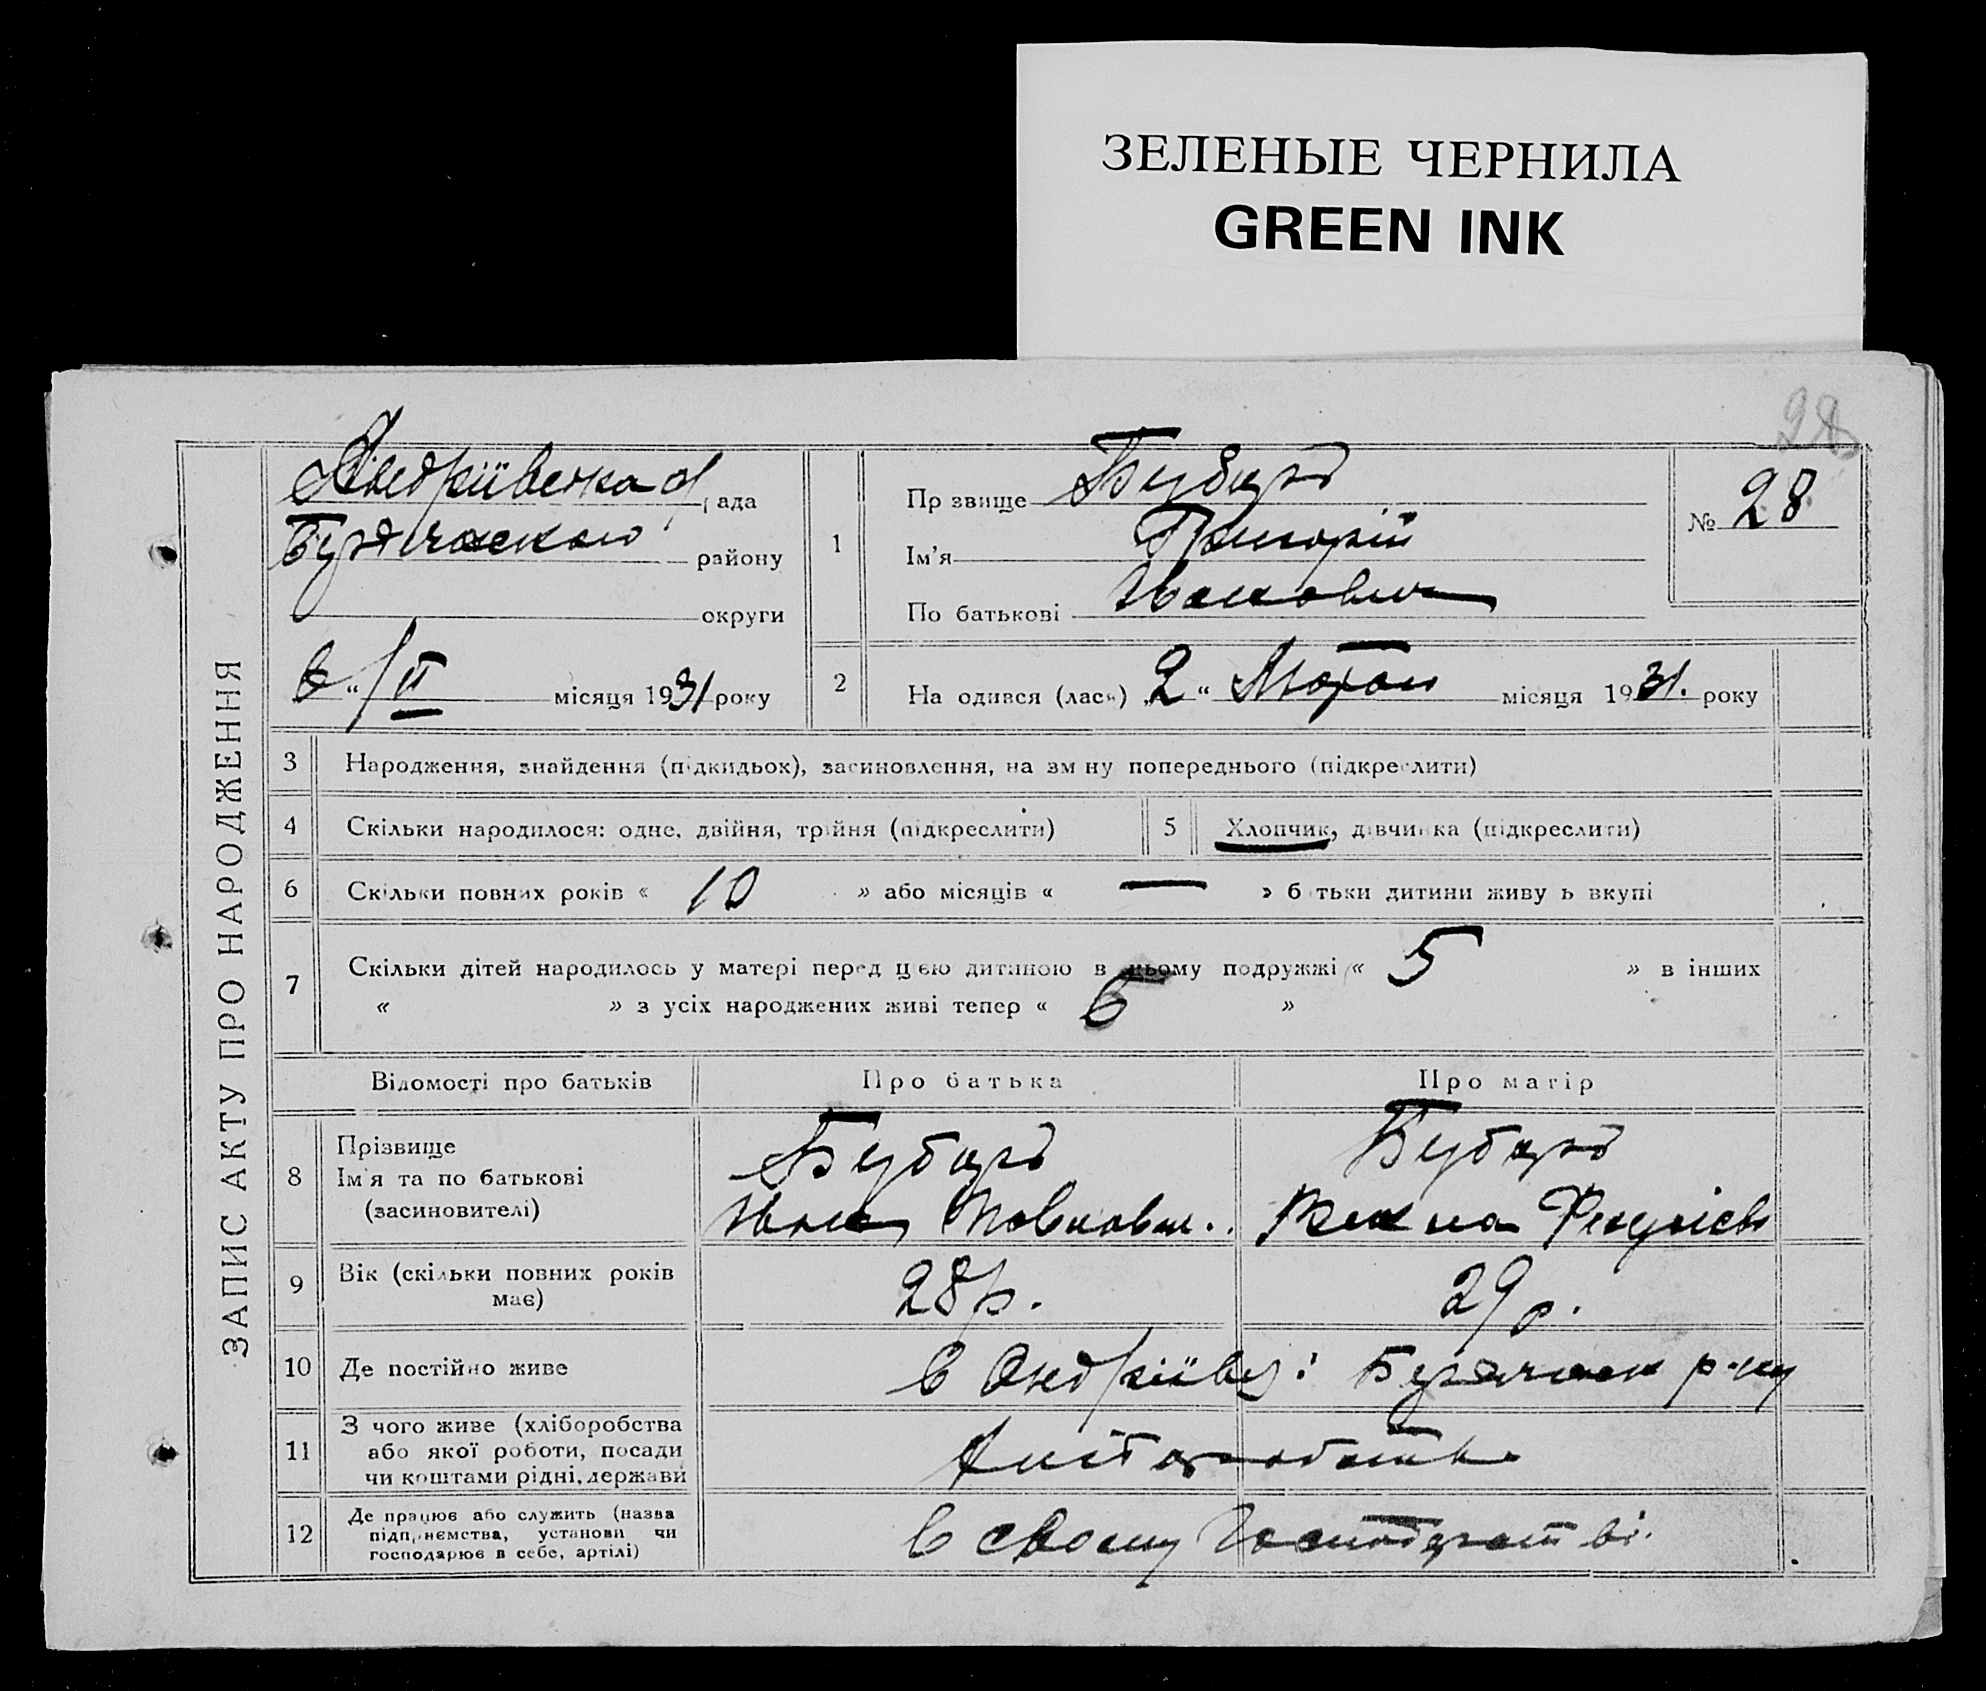 ЗЕЛЕНЫЕ ЧЕРНИЛА
GREEN INK
28
ЗАПИС АКТУ ПРО НАРОДЖЕННЯ
Андріївська рада
району
округи
6 " / II місяця 1931 року
1
Пр звище
Ім'я Григорій
По батькові Іванович
№ 28
2 На одився (лась) „2 “ місяця 1931. року
3 Народження, знайдення (підкидьох), засиновлення, на зм ну попереднього (підкреслити)
4 Скільки народилося: одне, двійня, трійня (підкреслити)
5 Хлопчик, дівчинка (підкреслити)
6 Скільки повних років « 10 » або місяців « — » б тьки дитини живу ь вкупі
7 Скільки дітей народилось у матері перед цією дитиною в цьому подружжі « 5 » в інших
« » з усіх народжених живі тепер « »
Відомості про батьків Про батька Про матір
8 Прізвище
Ім'я та по батькові Іван
(засиновителі)
9 Вік (скільки повних років має) 28 р. 29 р.
10 Де постійно живе в Андріївці р-ну
11 З чого живе (хліборобства
або якої роботи, посади
чи коштами рідні, держави
12 Де працює або служить (назва
підприємства, установи чи
господарює в себе, артілі) в свому господарстві.